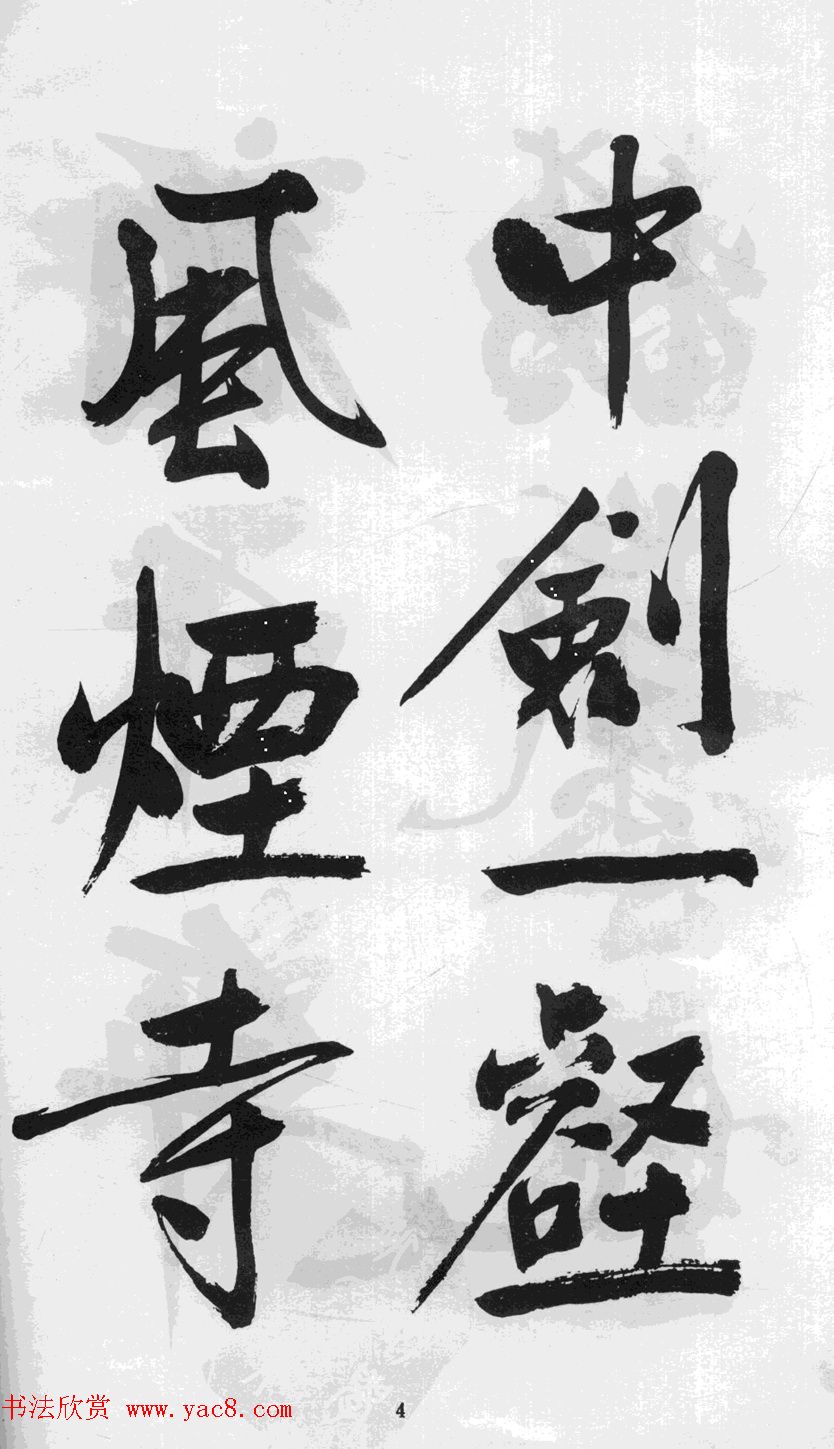 中劍一壑
風煙寺
书法欣赏 www.yac8.com
4